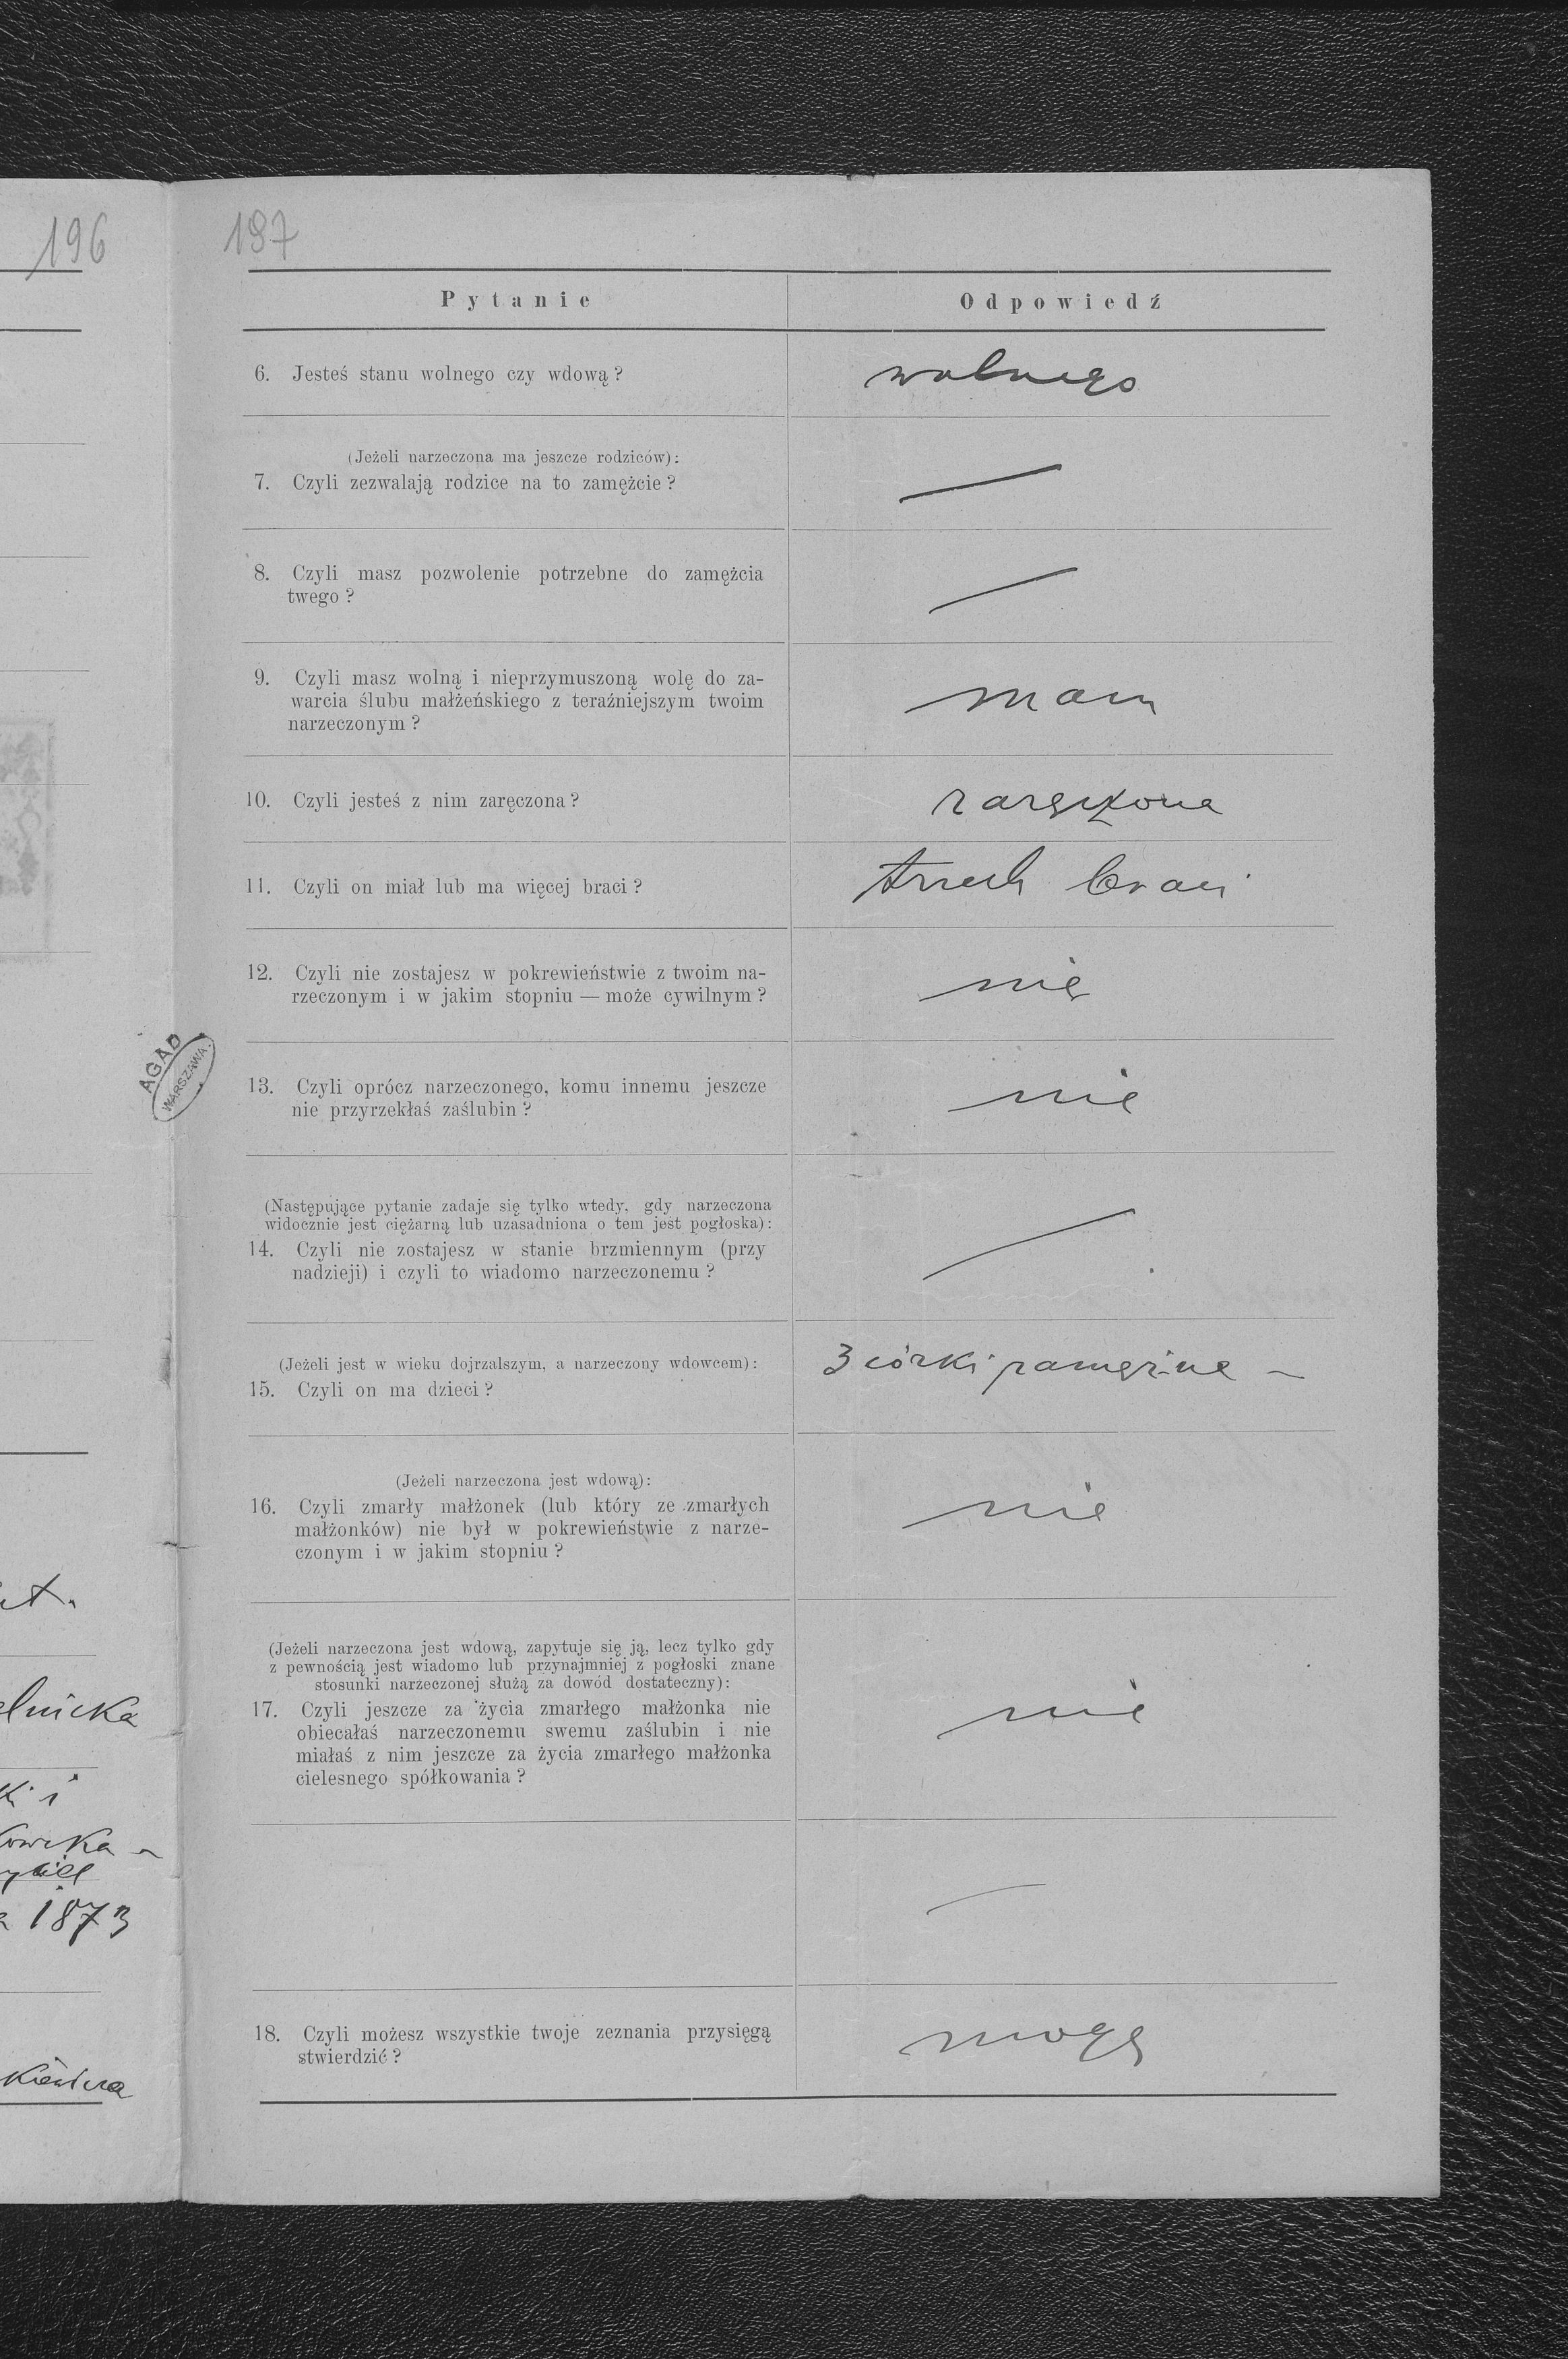 196
197
Pytanie
Odpowiedź
6. Jesteś stanu wolnego czy wdową?
wolnego
(Jeżeli narzeczona ma jeszcze rodziców):
7. Czyli zezwalają rodzice na to zamężcie?
—
8. Czyli masz pozwolenie potrzebne do zamężcia
twego?
—
9. Czyli masz wolną i nieprzymuszoną wolę do za-
warcia ślubu małżeńskiego z teraźniejszym twoim
narzeczonym?
mam
10. Czyli jesteś z nim zaręczona?
zaręczona
11. Czyli on miał lub ma więcej braci?
trzech braci
12. Czyli nie zostajesz w pokrewieństwie z twoim na-
rzeczonym i w jakim stopniu — może cywilnym?
nie
13. Czyli oprócz narzeczonego, komu innemu jeszcze
nie przyrzekłaś zaślubin?
nie
(Następujące pytanie zadaje się tylko wtedy, gdy narzeczona
widocznie jest ciężarną lub uzasadniona o tem jest pogłoska):
14. Czyli nie zostajesz w stanie brzmiennym (przy
nadzieji) i czyli to wiadomo narzeczonemu?
—
(Jeżeli jest w wieku dojrzalszym, a narzeczony wdowcem):
15. Czyli on ma dzieci?
3 córki zamężne –
(Jeżeli narzeczona jest wdową):
16. Czyli zmarły małżonek (lub który ze zmarłych
małżonków) nie był w pokrewieństwie z narze-
czonym i w jakim stopniu?
nie
(Jeżeli narzeczona jest wdową, zapytuje się ją, lecz tylko gdy
z pewnością jest wiadomo lub przynajmniej z pogłoski znane
stosunki narzeczonej służą za dowód dostateczny):
17. Czyli jeszcze za życia zmarłego małżonka nie
obiecałaś narzeczonemu swemu zaślubin i nie
miałaś z nim jeszcze za życia zmarłego małżonka
cielesnego spółkowania?
nie
—
18. Czyli możesz wszystkie twoje zeznania przysięgą
stwierdzić?
mogę
AGAD
WARSZAWA
elnicka
ki i
1873